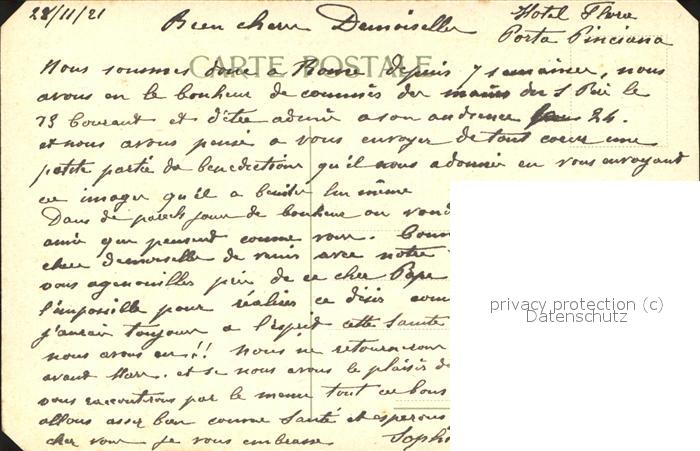 28/11/21
Bien chere Demoiselle
Hotel Flora
Porta Pinciana
CARTE POSTALE
Nous sommes donc a Rome depuis 7 semaines, nous
avons eu le bonheur de des mains du S Père le
23 Courant et d'être admis a son audience 24.
et nous avons pensé a vous envoyer de tout coeur une
petite partie de benedictions qu'il nous a donnée en vous envoyant
ce image qu'il a bénite lui même
Dans de pareils jours de bonheur on
amis qui pensent comme vous.
chere demoiselle de venir avec notre
vous agenouiller près de ce cher Pape
l'impossible pour réaliser ce désir
j'aurai toujour a l'esprit cette Sainte
nous avons eu!! nous ne retournerons
avant Mars. et si nous avons le plaisir de
vous raconterons par le menu tout ce
allons assez bien comme Santé et esperons
cher vous je vous embrasse Sophi
privacy protection (c)
Datenschutz